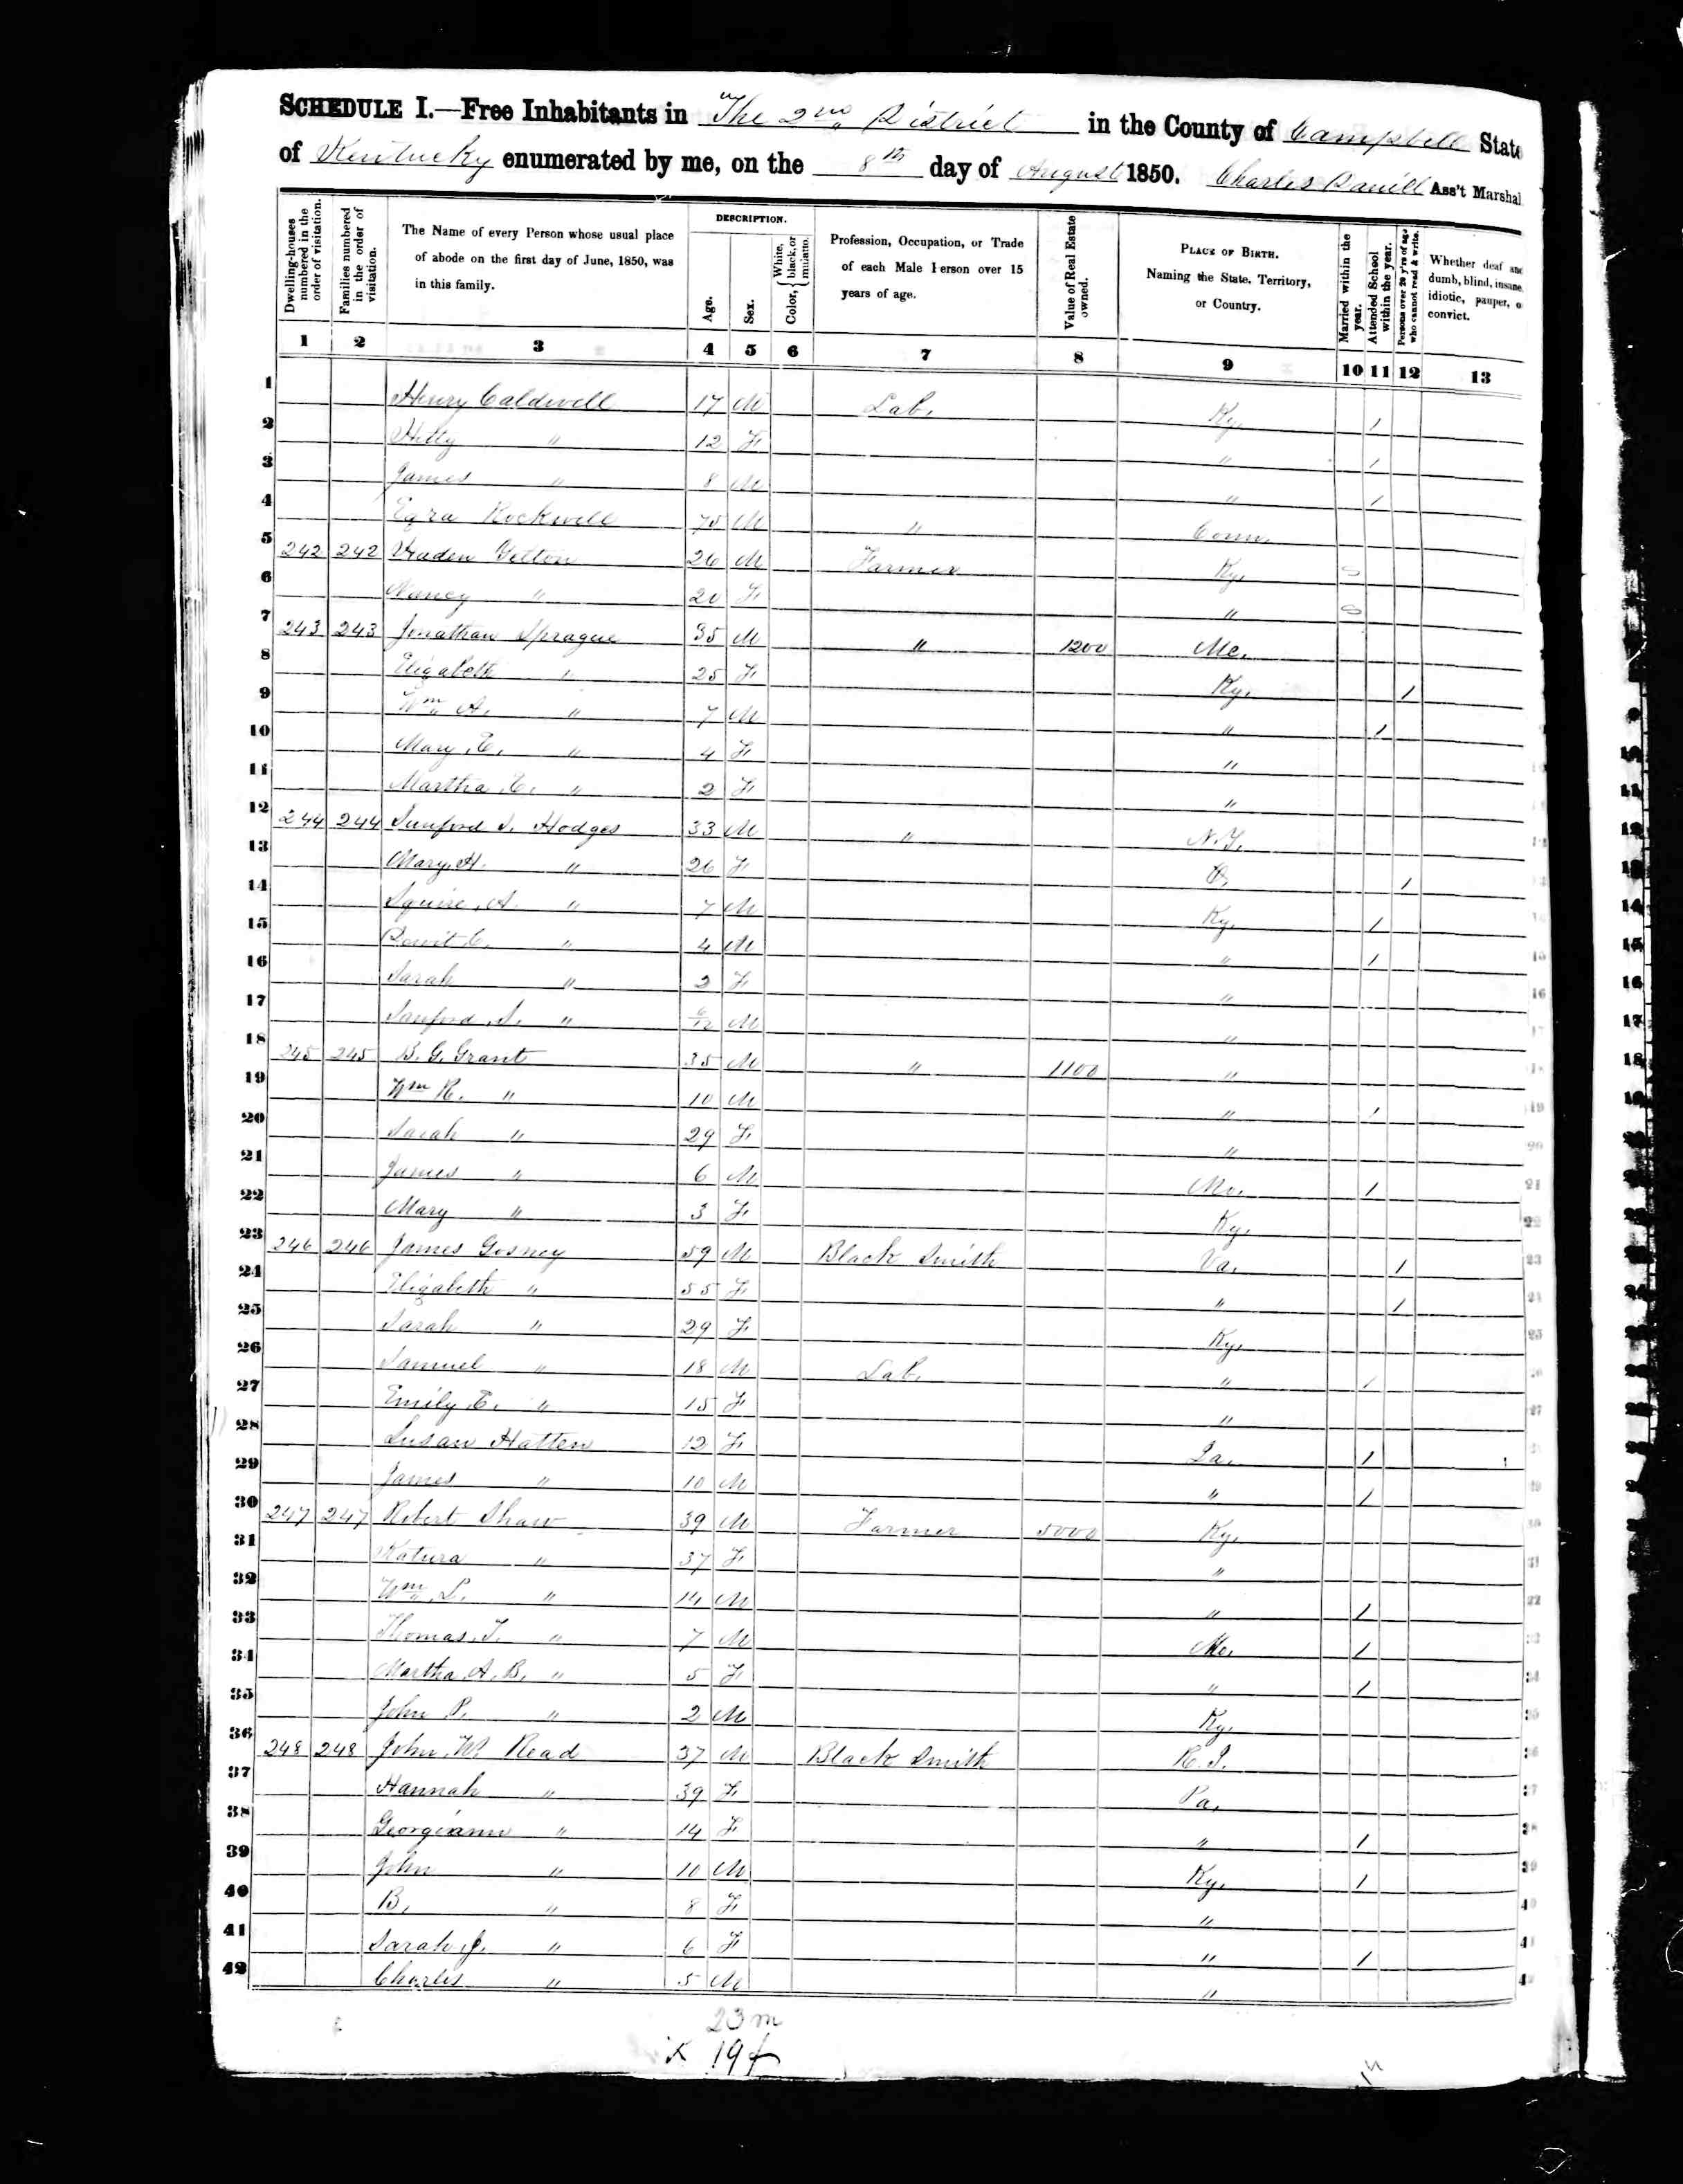 SCHEDULE I.—Free Inhabitants in The 2nd District in the County of Campbell State
of Kentucky enumerated by me, on the 8th day of August 1850. Charles Ass't Marshal
Dwelling-houses numbered in the order of visitation.
Families numbered in the order of visitation.
The Name of every Person whose usual place of abode on the first day of June, 1850, was in this family.
DESCRIPTION.
Age.
Sex.
Color, { White, black, or mulatto.
Profession, Occupation, or Trade of each Male Person over 15 years of age.
Value of Real Estate owned.
PLACE OF BIRTH. Naming the State, Territory, or Country.
Married within the year.
Attended School within the year.
Persons over 20 y'rs of age who cannot read & write.
Whether deaf and dumb, blind, insane, idiotic, pauper, o convict.
1 2 3 4 5 6 7 8 9 10 11 12 13
1 Henry Caldwell 17 M Lab. Ky. 1
2 Hetty " 12 F " 1
3 James " 8 M " 1
4 Ezra Rockwell 75 M " Conn.
5 242 242 26 M Farmer Ky.
6 Nancy " 20 F "
7 243 243 Jonathan Sprague 35 M " 1200 Me.
8 Elizabeth " 25 F Ky. 1
9 Wm A. " 7 M " 1
10 Mary E. " 4 F "
11 Martha E. " 2 F "
12 244 244 Sanford S. Hodges 33 M " N.Y.
13 Mary H. " 26 F O. 1
14 Squire A. " 7 M Ky. 1
15 Dewit C. " 4 M " 1
16 Sarah " 2 F "
17 Sanford S. " 6/12 M "
18 245 245 B. G. Grant 35 M " 1100 "
19 Wm R. " 10 M " 1
20 Sarah " 29 F "
21 James " 6 M Mo. 1
22 Mary " 3 F Ky.
23 246 246 James Gosney 59 M Black Smith Va. 1
24 Elizabeth " 55 F " 1
25 Sarah " 29 F Ky.
26 Samuel " 18 M Lab. " 1
27 Emily E. " 15 F "
28 Susan Hatten 12 F La. 1
29 James " 10 M " 1
30 247 247 Robert Shaw 39 M Farmer 5000 Ky.
31 Katura " 37 F "
32 Wm L. " 14 M " 1
33 Thomas J. " 7 M Mo. 1
34 Martha A. B. " 5 F " 1
35 John P. " 2 M Ky.
36 248 248 John W. Read 37 M Black Smith R.I.
37 Hannah " 39 F Pa.
38 Georgiann " 14 F " 1
39 John " 10 M Ky. 1
40 B. " 8 F "
41 Sarah J. " 6 F " 1
42 Charles " 5 M "
23 m
19 f